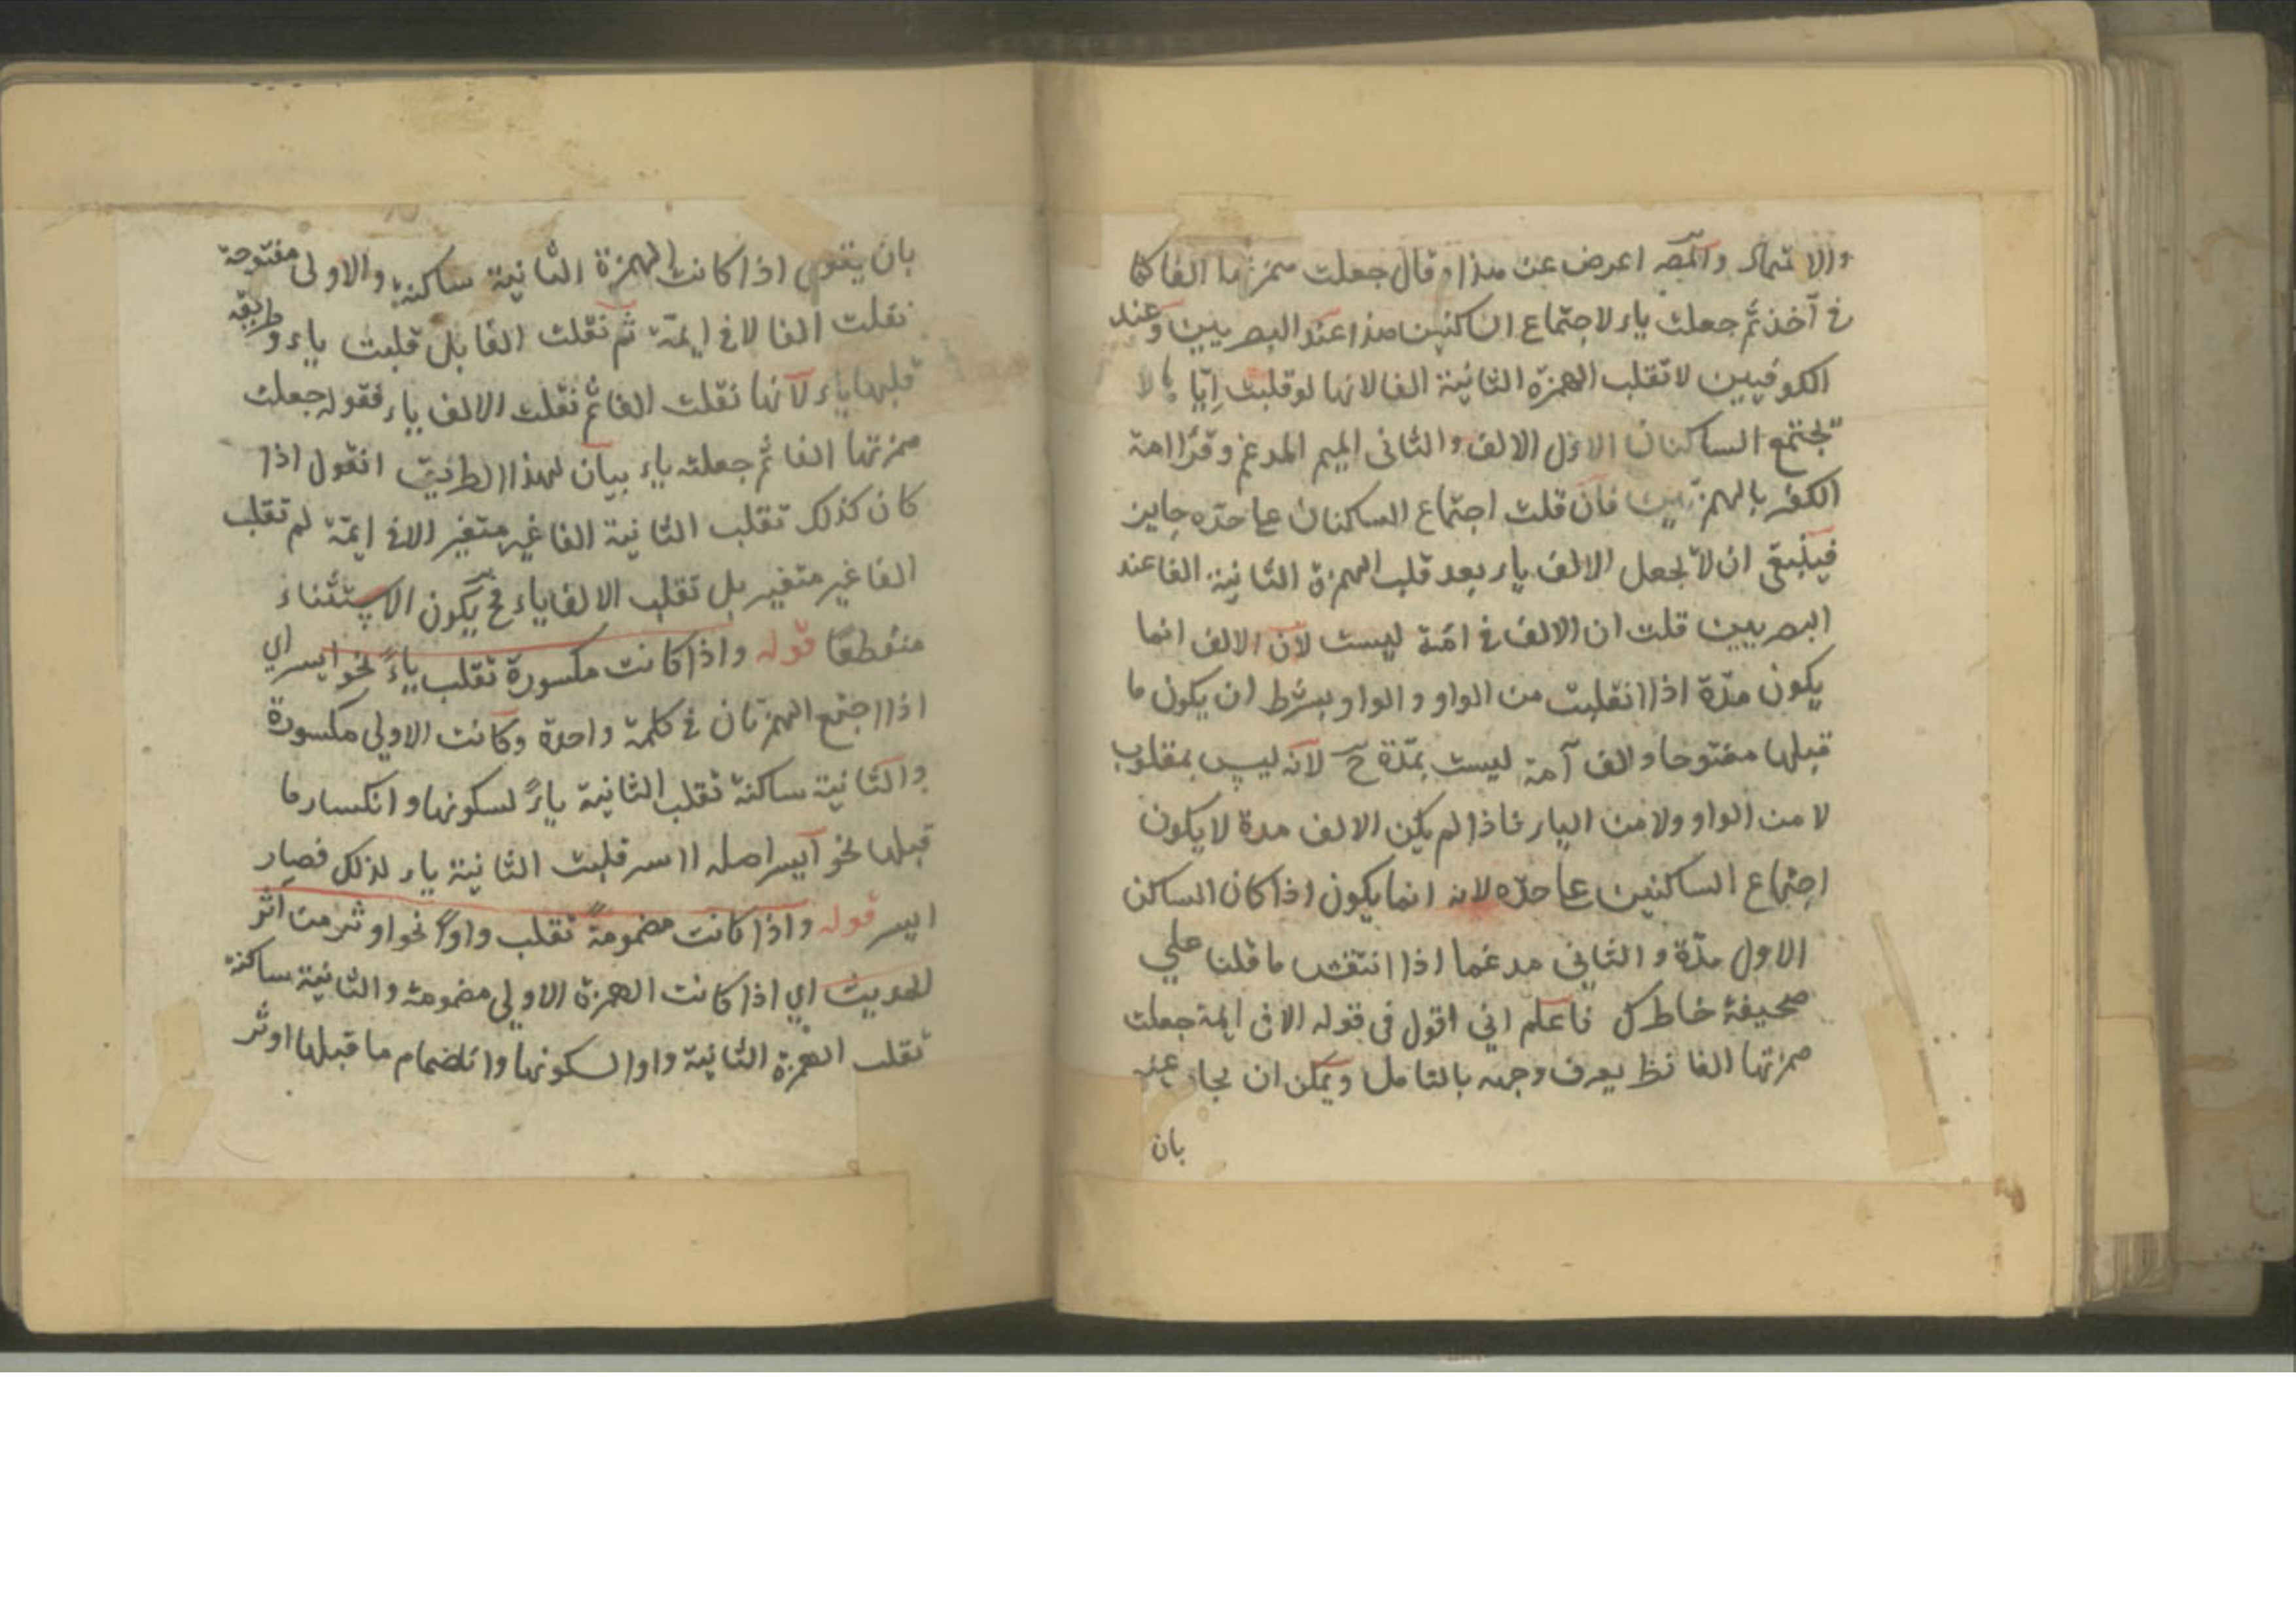 والمصـ اعرض عن هذا وقال جعلت همزتها الفا كما
في آخذ ثم جعلت ياء لاجتماع الساكنين هذا عند البصريين وعند
الكوفيين لا تقلب الهمزة الثانية الفا لانها لو قلبت
يجتمع الساكنان الاول الالف والثانى الميم المدغم وقرا ائمة
الكفر بالهمزتين فان قلت اجتماع الساكنان على حدّه جايز
فينبغى ان لا يجعل الالف ياء بعد قلب الهمزة الثانية الفا عند
البصريين قلت ان الالف في امّة ليست لان الالف انما
يكون مدّة اذا انقلبت من الواو والواو بشرط ان يكون ما
قبلها مفتوحا والف آمة ليست بمدّة ح لانه ليس بمقلوب
لا من الواو ولا من الياء فاذا لم يكن الالف مدة لا يكون
اجتماع الساكنين على حدّه لانه انما يكون اذا كان الساكن
الاول مدّة والثاني مدغما اذا انتقش ما قلنا علي
صحيفة خاطرك فاعلم اني اقول في قوله الا في ايمة جعلت
همزتها الفا نظر يعرف وجهه بالتامل ويمكن ان يجاب عنه
بان
بان يقول اذا كانت الهمزة الثانية ساكنة والاولى مفتوحة
نقلت الفا الا في ايمّة ثم نقلت الفا بل قلبت ياء وطريقه
قلبها ياء لانها نقلت الفا ثم نقلت الالف ياء فقوله جعلت
همزتها الفا ثم جعلت ياء بيان لهذا الطريق انقول اذا
كان كذلك تقلب الثانية الفا غير متغير الا في ايمّة لم تقلب
الفا غير متغير بل تقلب الالف ياء فح يكون الاستثناء
منقطعًا قوله واذا كانت مكسورة تقلب ياءً نحو ايسر اي
اذا اجتمع الهمزتان في كلمة واحدة وكانت الاولي مكسورة
والثانية ساكنة تقلب الثانية ياءً لسكونها وانكسار ما
قبلها نحو ايسر اصله ااسر قلبت الثانية ياء لذلك فصار
ايسر قوله واذا كانت مضمومة تقلب واوًا نحو اوثر من اثر
الحديث اي اذا كانت الهمزة الاولي مضمومة والثانية ساكنة
تقلب الهمزة الثانية واوا لسكونها وانضمام ما قبلها اوثر